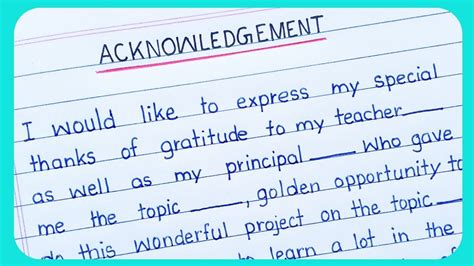 ACKNOWLEDGEMENT
I would like to express my special
thanks of gratitude to my teacher____
as well as my principal____ Who gave
me the topic ____, golden opportunity to
do this wonderful project on the topic____
to learn a lot in the